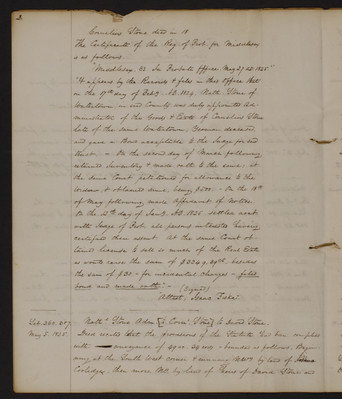 Cornelius Stone died in 18
The Certificate of the Reg. of Prob. for Middlesex
is as follows
"Middlesex, ss. In Probate Office May 27 AD 1825."
"It appears by the Records & files in this Office that
on the day of Feb. AD. 1824, Nath. Stone of
Watertown in said County was duly appointed Ad-
ministrator of the Goods & Estate of Cornelius Stone
late of the same Watertown, Yeoman deceased
and gave a Bond acceptable to the Judge for that
trust. - On the second day of March following
returned Inventory & made oath to the same. At
the same Court petitioned for allowance to the
widow & obtained same, being $500 - On the 18th
of May following, made Affidavit of Notice
On the day of Jany. AD 1825 settled acct
with Judge of Prob. all persons interested having
certified their assent. At the same Court ob-
tained licence to sell so much of the Real Estate
as would raise the sum of besides
the sum of $30 - for incidental charges - filed
bond and made oath." - (Signed)
Attest, Isaac Fiske
May 5. 1825.
Nath. Stone, Adm. [to Corns. Stone] to David Stone
Deed recites that the provisions of the Statute had been complied
with - conveyance of - bounded as follows. Begin-
ning at the South west corner & running by land of
Coolidge, then more by land of Heirs of David Stone